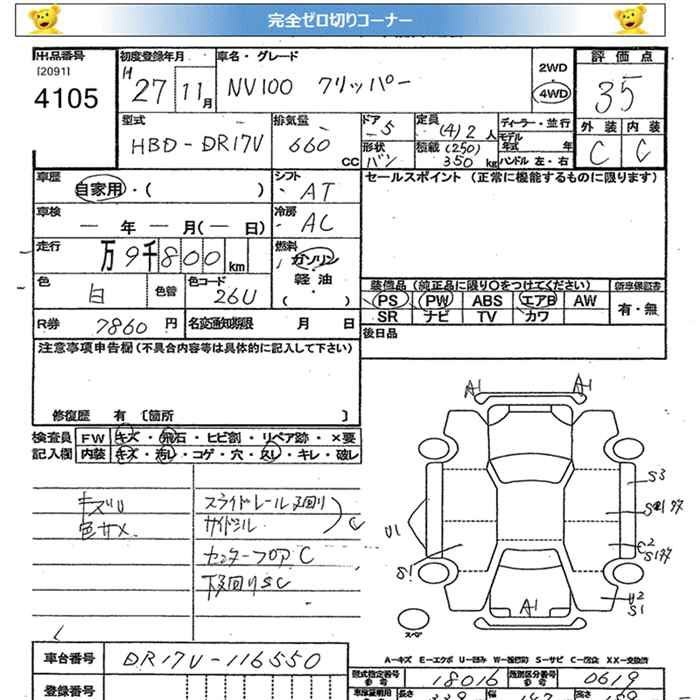 完全ゼロ切りコーナー
出品番号 初度登録年月 車名・グレード 評価点
[2091] H 27 11月 NV100 クリッパー 2WD 35
4105 4WD
外装 内装
型式 排気量 ドア 5 定員 (4)2人 ディーラー・並行 C C
HBD-DR17V 660cc 形状 バン 積載 (250) 350kg モデル年式 年
ハンドル 左・右
車歴 自家用・( ) シフト AT セールスポイント (正常に機能するものに限ります)
車検 ー年ー月(ー日) 冷房 AC
走行 万9千800km 燃料 ガソリン
軽油
( )
色 白 色替 色コード 26U 装備品 (純正品に限り○をつけてください) 新車保証書
PS PW ABS エアB AW 有・無
SR ナビ TV カワ
R券 7860円 名変通知期限 月 日 後日品
注意事項申告欄 (不具合内容等は具体的に記入して下さい)
修復歴 有 [箇所 ]
検査員 FW キズ・飛石・ヒビ割・リペア跡・×要
記入欄 内装 キズ・汚レ・コゲ・穴・スレ・キレ・破レ
キズU スライドレール
色サメ サイドシル C
センターフロア C
下廻りSC
A1 A1
S3
U1
S1
A1
U2
S1
スペア
A-キズ E-エクボ U-凹み W-補修跡 S-サビ C-腐食 XX-交換済
車台番号 DR17V-116550
型式指定番号 18016 類別区分番号 0619
登録番号 長さ 339 幅 147 高さ